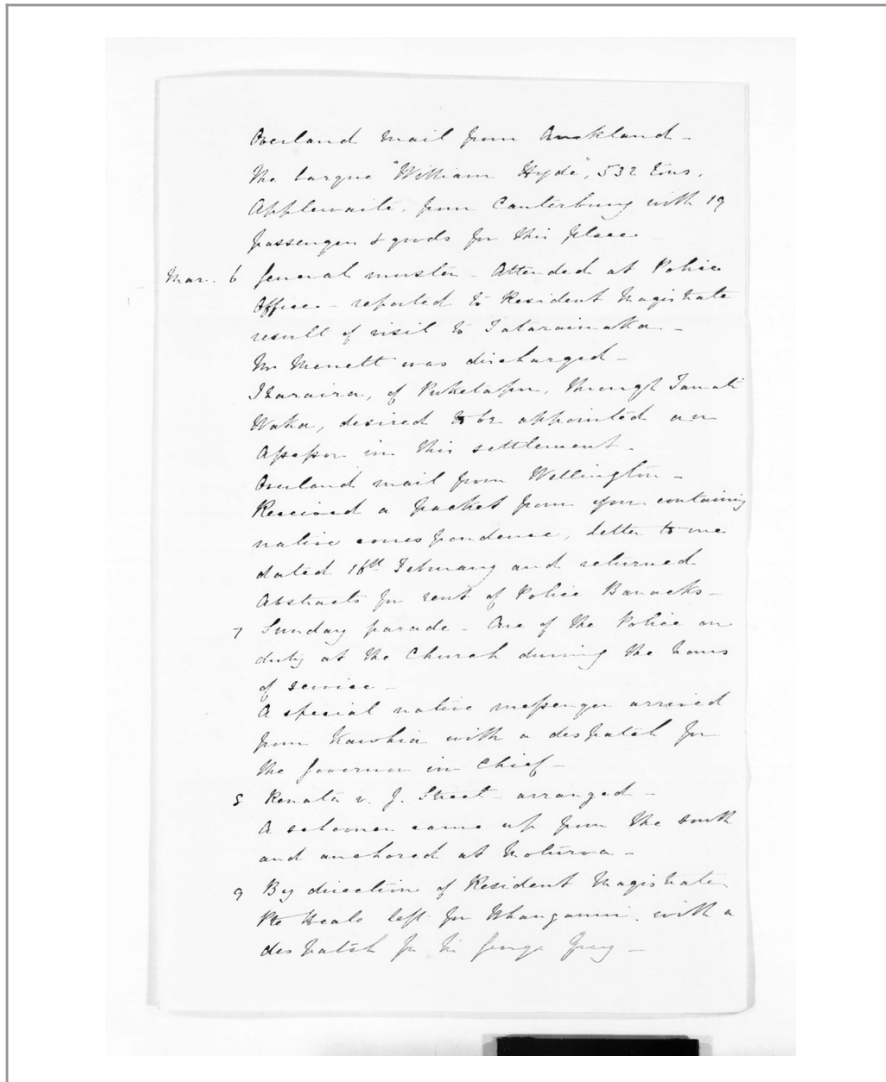 Overland mail from Auckland -
The barque "William Hyde", 532 tons,
Applewaite, from Canterbury with 19
passengers & goods for this place -
Mar. 6 General muster - Attended at Police
Office - reported to Resident Magistrate
result of visit to Tataraimaka -
Mr Merrett was discharged -
Iharaira, of Puketapu, through Tamati
Waka, desired to be appointed an
Assessor in this settlement -
Overland mail from Wellington -
Received a packet from you containing
native correspondence, letter to me
dated 18th February and returned
Abstracts for rent of Police Barracks -
7 Sunday parade - One of the Police on
duty at the Church during the hours
of service -
A special native messenger arrived
from Kawhia with a despatch for
the Governor in Chief -
8 Renata v. J. Street - arranged -
A schooner came up from the south
and anchored at Moturoa -
9 By direction of Resident Magistrate
Pte left for Whanganui, with a
despatch for Sir George Grey -